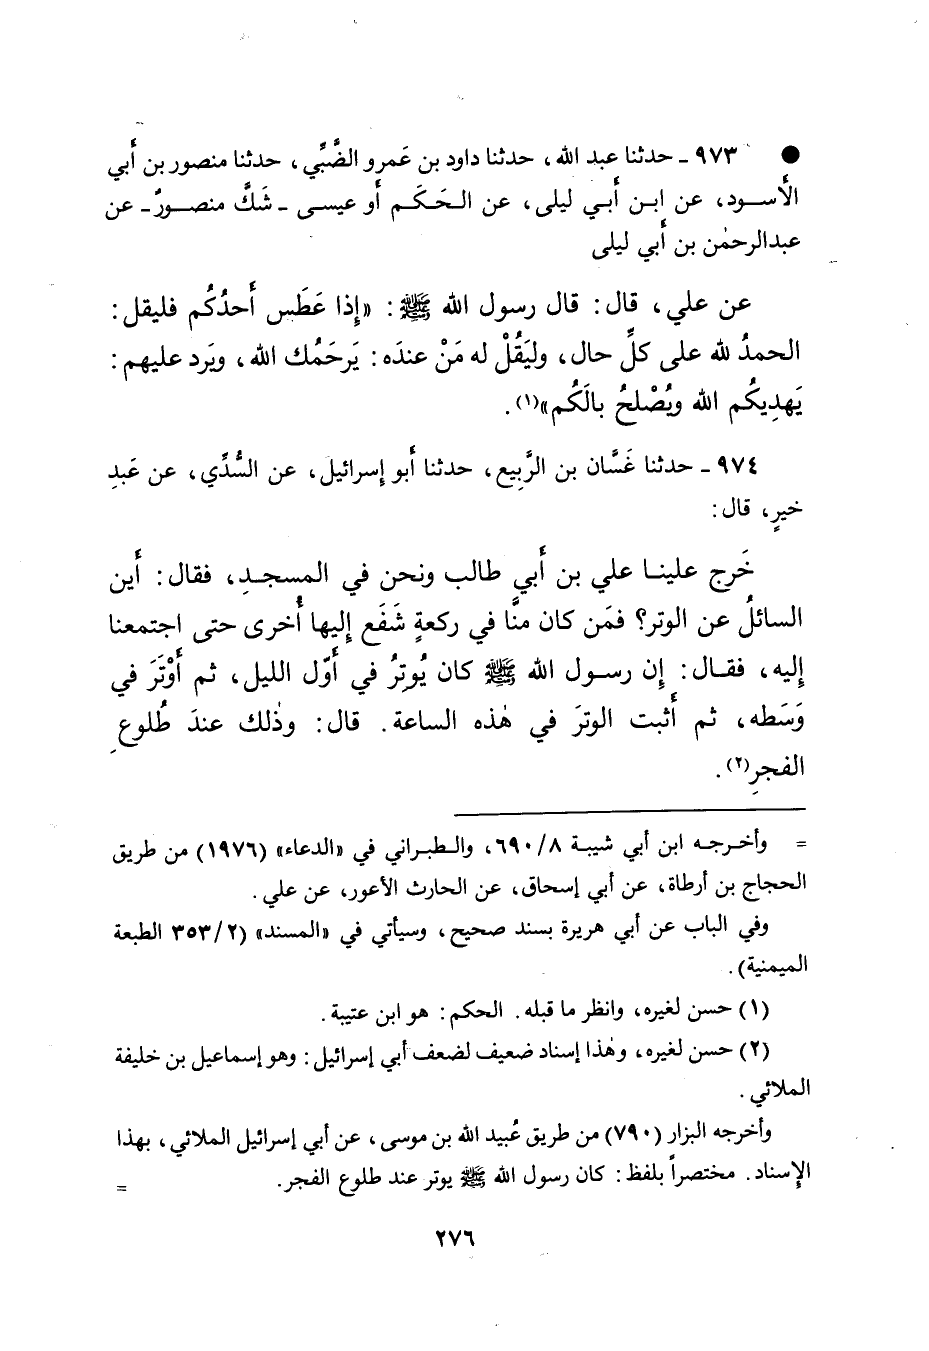 ● ٩٧٣ ـ حدثنا عبد الله، حدثنا داود بن عَمرو الضَّبِّي، حدثنا منصور بن أَبي
الأَسود، عن ابن أَبي ليلى، عن الحَكَم أَو عيسى ـ شَكَّ منصورٌ ـ عن
عبدالرحمٰن بن أَبي ليلى
عن علي، قال: قال رسول الله ﷺ: «إِذا عَطَس أَحدُكُم فليقل:
الحمدُ لله على كلِّ حال، وليَقُلْ له مَنْ عندَه: يَرحَمُك الله، ويَرد عليهم:
يَهدِيكُم الله ويُصْلحُ بالَكُم»(١).
٩٧٤ ـ حدثنا غَسَّان بن الرَّبيع، حدثنا أَبو إِسرائيل، عن السُّدِّي، عن عَبدِ
خيرٍ، قال:
خَرج علينا علي بن أَبي طالب ونحن في المسجدِ، فقال: أَين
السائلُ عن الوتر؟ فمَن كان منَّا في ركعةٍ شَفَع إِليها أُخرى حتى اجتمعنا
إِليه، فقال: إِن رسول الله ﷺ كان يُوتِرُ في أَوّل الليل، ثم أَوْتَرَ في
وَسَطه، ثم أَثبت الوترَ في هٰذه الساعة. قال: وذٰلك عندَ طُلوعِ
الفجرِ(٢).
= وأخرجه ابن أبي شيبة ٦٩٠/٨، والطبراني في «الدعاء» (١٩٧٦) من طريق
الحجاج بن أرطاة، عن أبي إسحاق، عن الحارث الأعور، عن علي.
وفي الباب عن أبي هريرة بسند صحيح، وسيأتي في «المسند» (٣٥٣/٢ الطبعة
الميمنية).
(١) حسن لغيره، وانظر ما قبله. الحكم: هو ابن عتيبة.
(٢) حسن لغيره، وهٰذا إسناد ضعيف لضعف أبي إسرائيل: وهو إسماعيل بن خليفة
الملائي.
وأخرجه البزار (٧٩٠) من طريق عُبيد الله بن موسى، عن أبي إسرائيل الملائي، بهذا
الإِسناد. مختصراً بلفظ: كان رسول الله ﷺ يوتر عند طلوع الفجر. =
٢٧٦